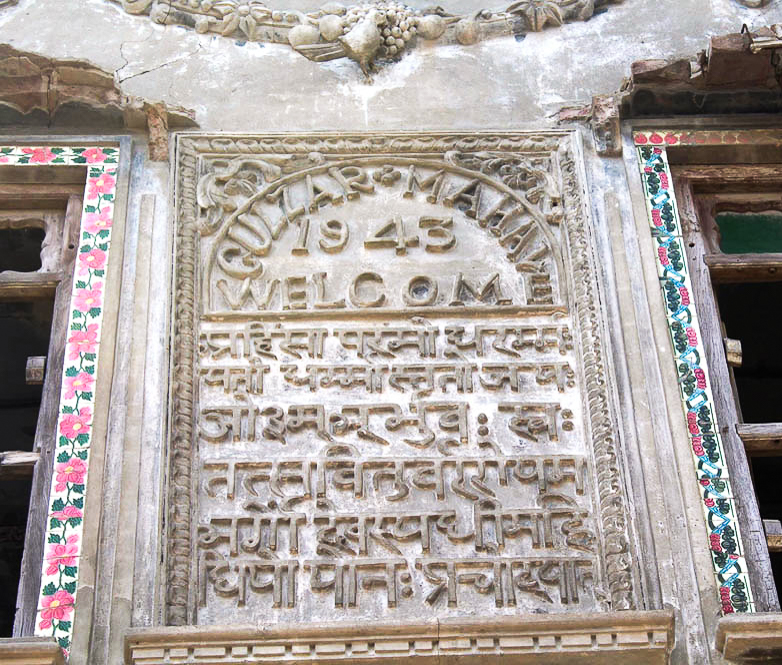 GULZAR MAHAL
1943
WELCOME
अहिंसा परमो धरम्मः
यतो धम्मा स्तता जयः
ओ३म् भूर्भुवः स्वः
तत्सवितुवरेण्यम
भर्गो देवस्य धीमहि
धियो योनः प्रचोदयात